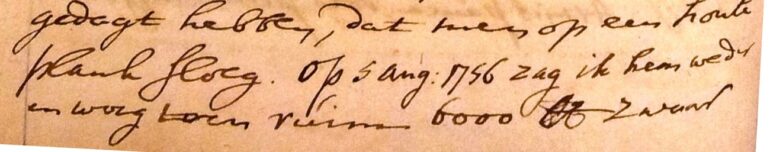 gedagt hebben, dat men op een houte
plank sloeg. Op 5 aug: 1756 zag ik hem weder
en woog toen ruim 6000 ℔ zwaar